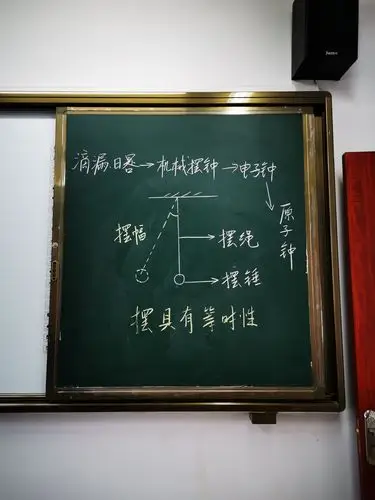 滴漏日晷→机械摆钟→电子钟
原子钟
摆幅
摆绳
摆锤
摆具有等时性